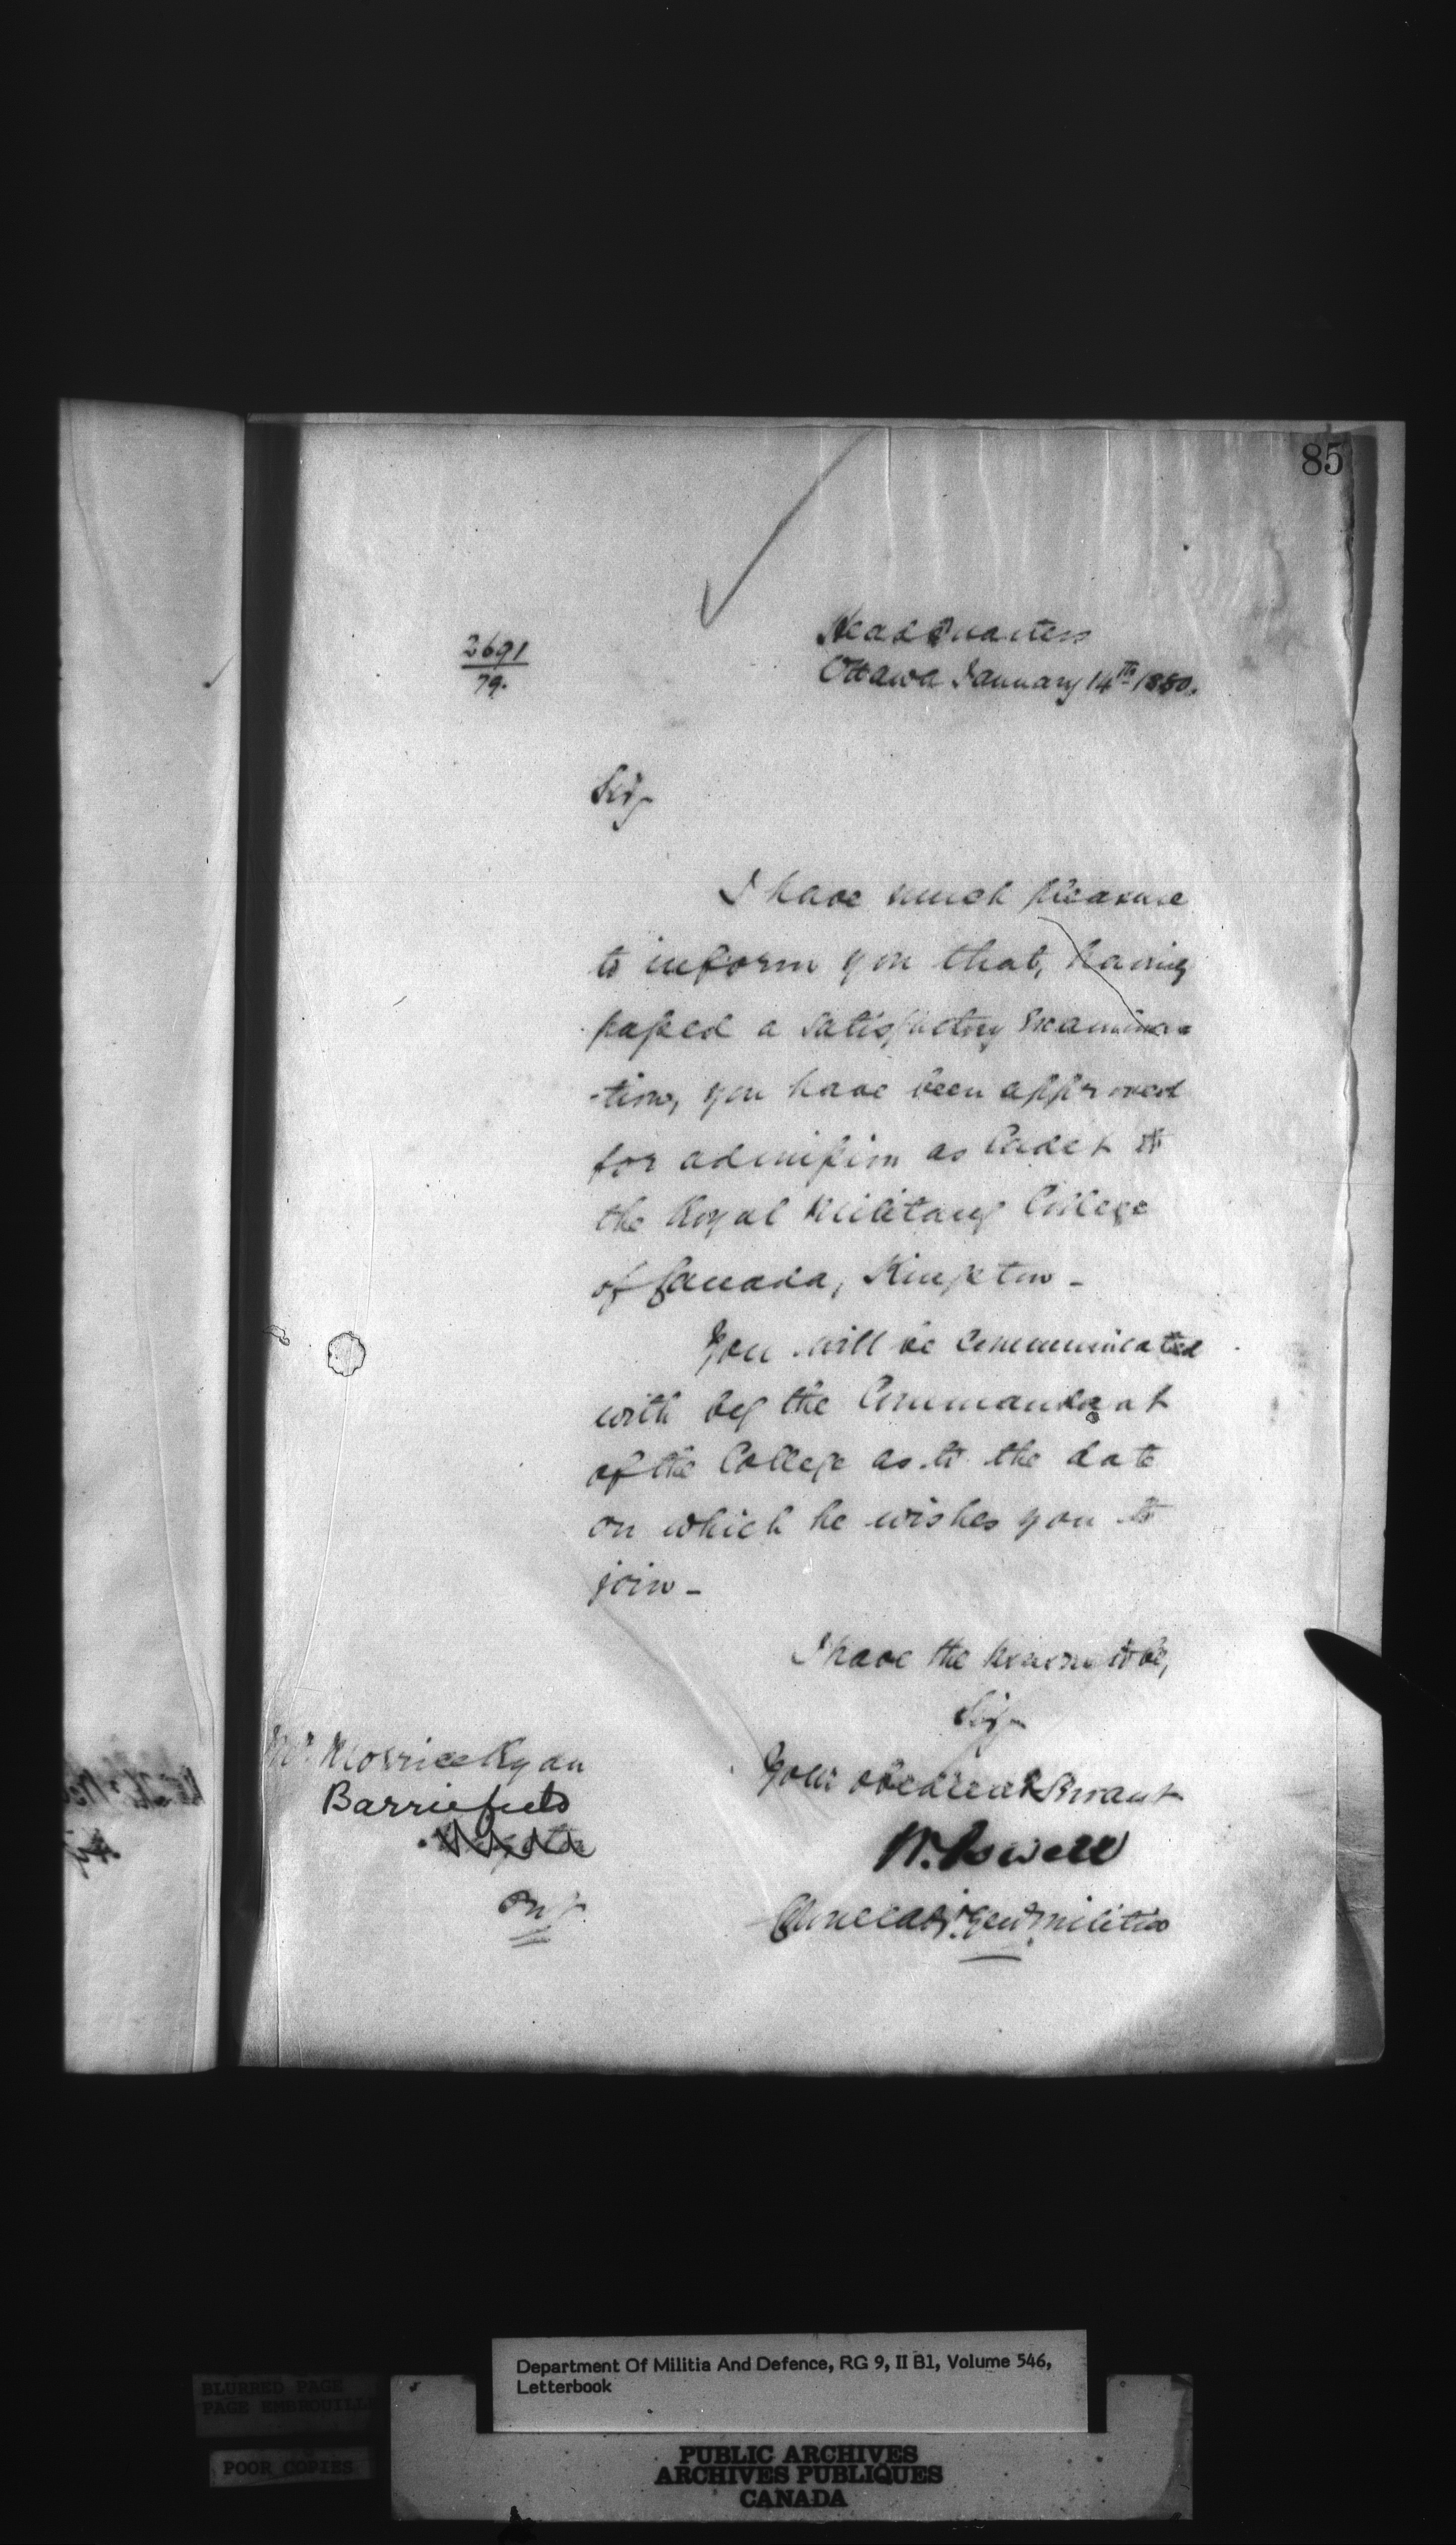 85
2691
79.
Head Quarters
Ottawa January 14th 1880.
Sir,
I have much pleasure
to inform you that, having
passed a satisfactory Examina-
-tion, you have been approved
for admission as Cadet to
the Royal Military College
of Canada, Kingston -
You will be communicated
with by the Commandant
of the College as to the date
on which he wishes you to
join -
I have the honour to be,
Sir,
Your obedient Servant
W. Powell
Colonel Adj. Genl Militia
Mr. Morrice Ryan
Barriefield
Ont
Department Of Militia And Defence, RG 9, II B1, Volume 546,
Letterbook
BLURRED PAGE
PAGE EMBROUILLE
POOR COPIES
PUBLIC ARCHIVES
ARCHIVES PUBLIQUES
CANADA